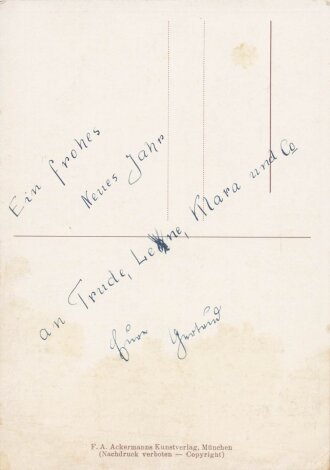 Ein frohes
Neues Jahr
an Trude, Lene, Klara und Co
Eure Gertrud
F. A. Ackermanns Kunstverlag, München
(Nachdruck verboten — Copyright)